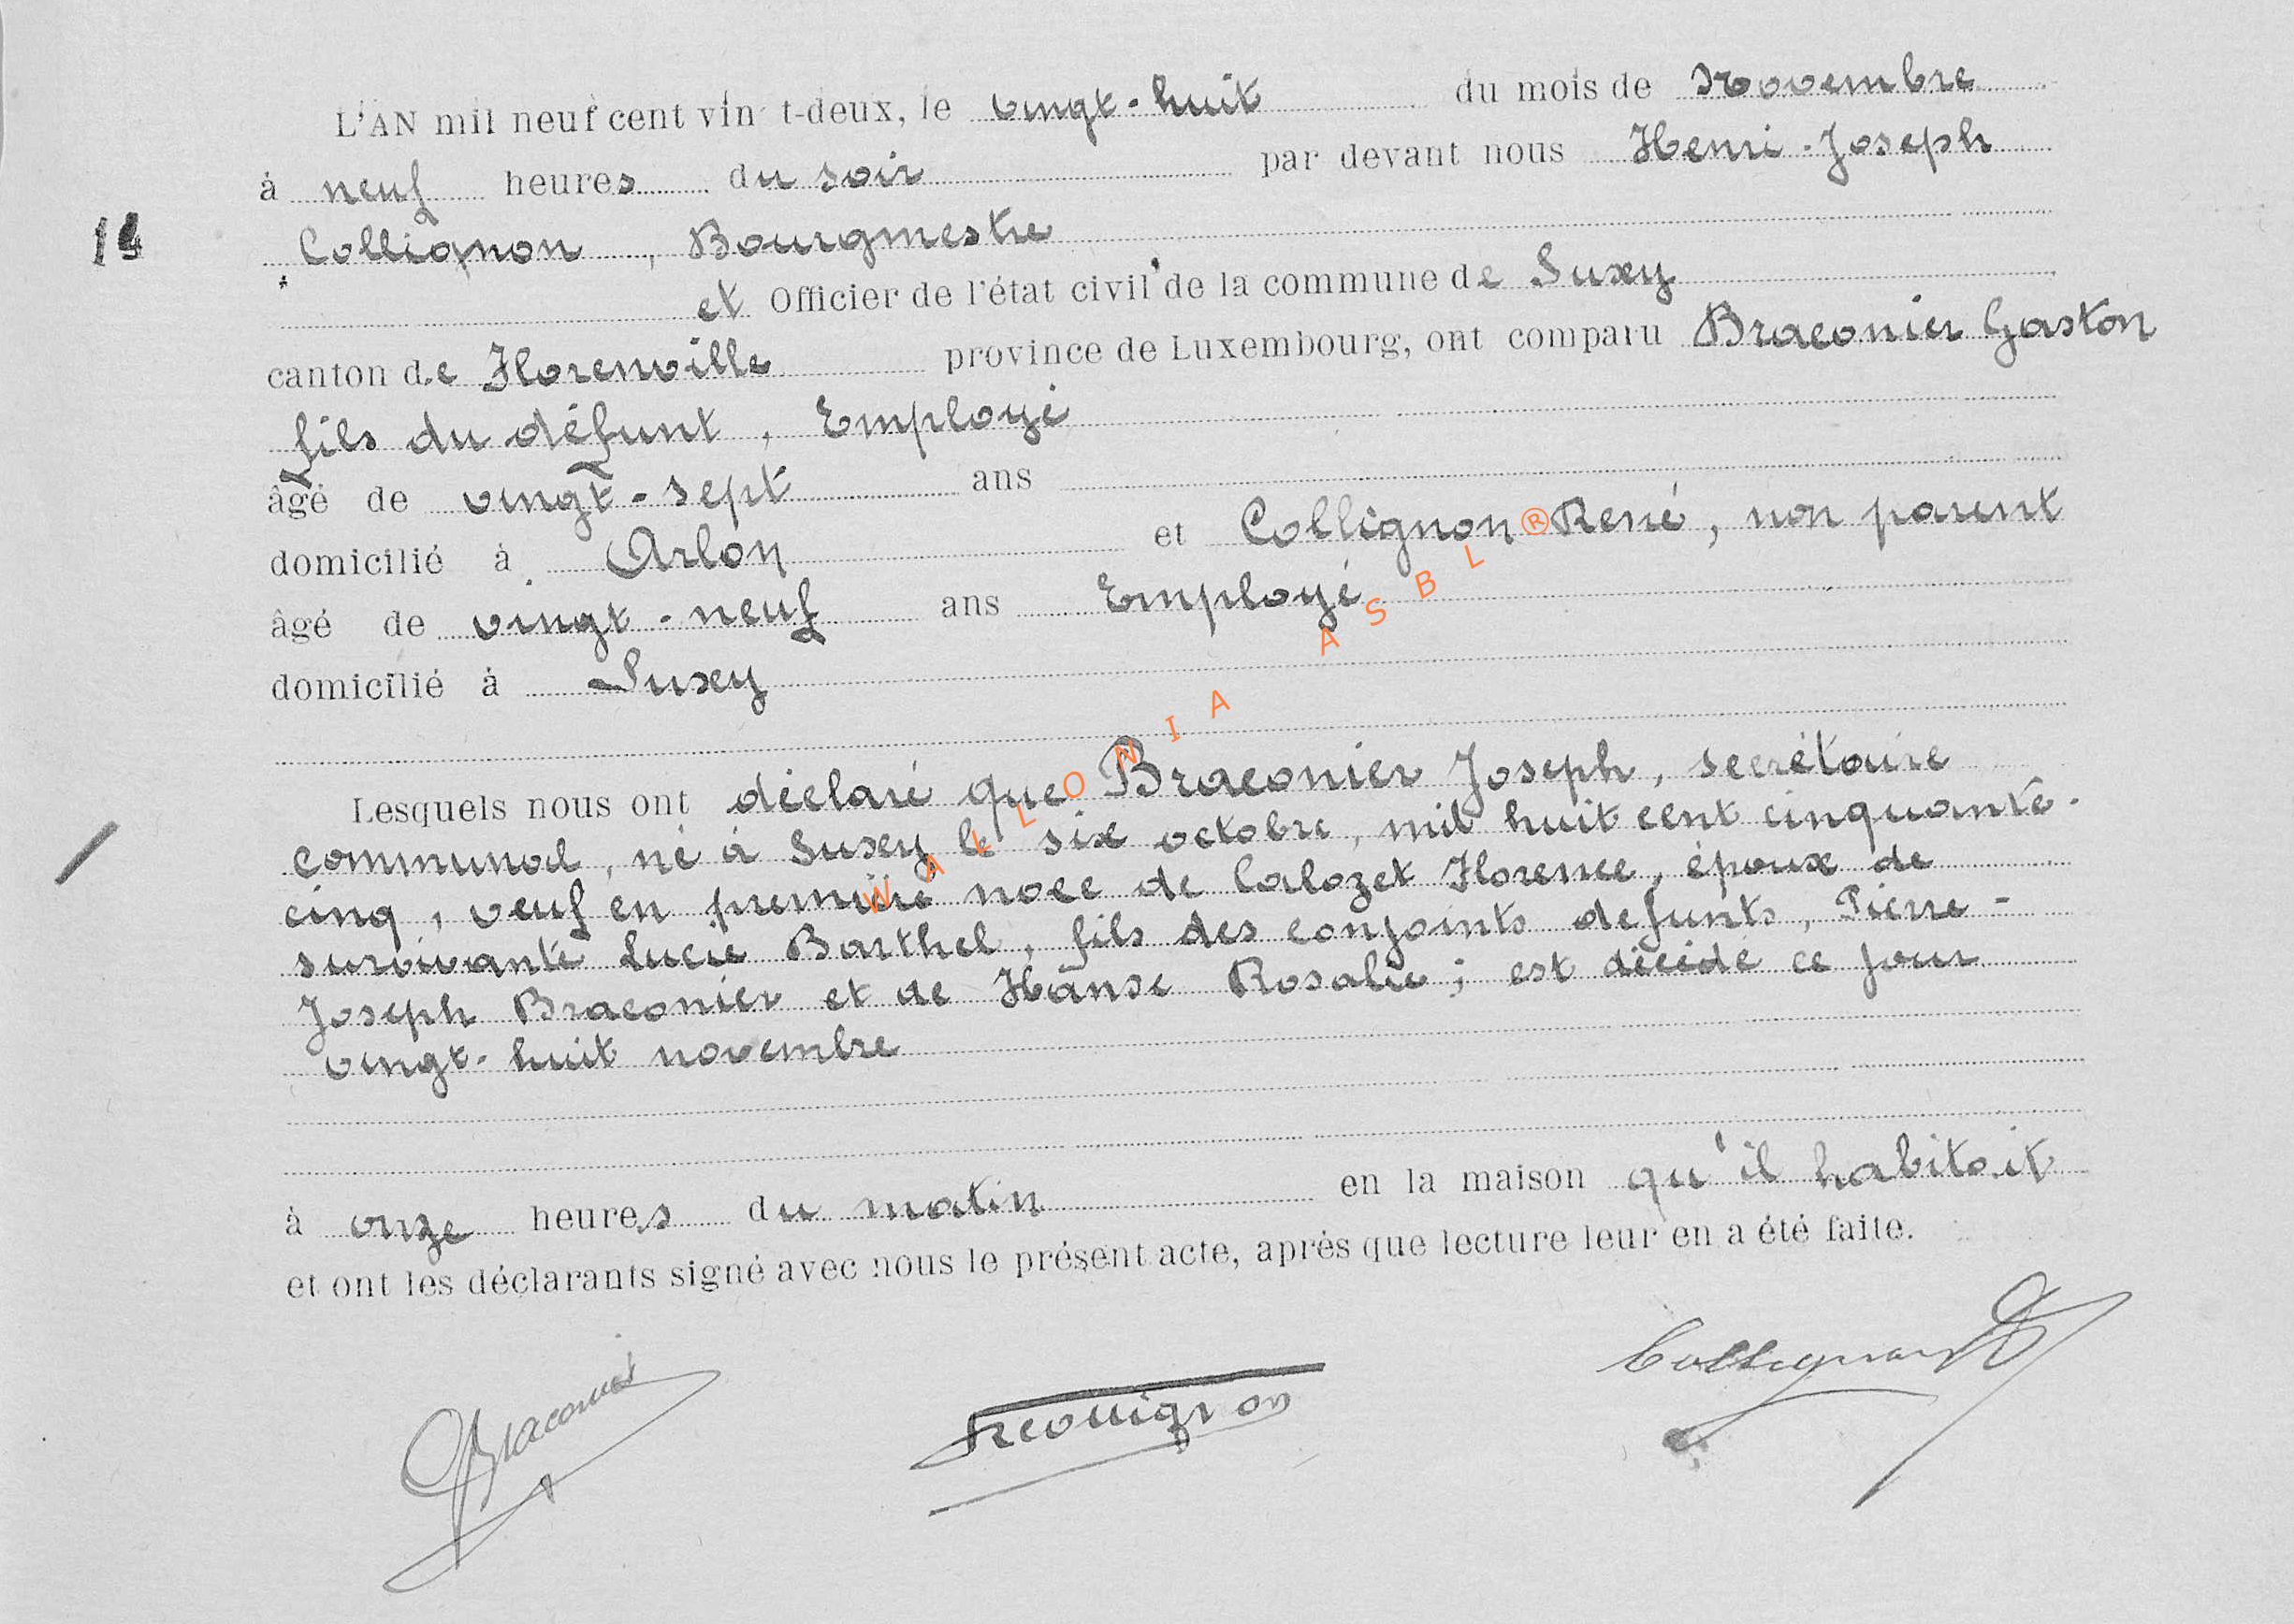 L'AN mil neuf cent vin t-deux, le vingt-huit du mois de Novembre
à neuf heures du soir par devant nous Henri-Joseph
14
Collignon, Bourgmestre
et Officier de l'état civil de la commune de Suxy
canton de Florenville province de Luxembourg, ont comparu Braconier Gaston
fils du défunt, Employé
âgé de vingt-sept ans
domicilié à Arlon et Collignon René, non parent
âgé de vingt-neuf ans Employé
domicilié à Suxy
Lesquels nous ont déclaré que Braconier Joseph, secrétaire
communal, né à Suxy le six octobre, mil huit cent cinquante-
cinq, veuf en première noce de Calozet Florence, époux de
survivante Lucie Barthel, fils des conjoints defunts, Pierre-
Joseph Braconier et de Hanse Rosalie; est décédé ce jour
vingt-huit novembre
à onze heures du matin en la maison qu'il habitait
et ont les déclarants signé avec nous le présent acte, après que lecture leur en a été faite.
GBraconier RCollignon Collignon
WALLONIA ASBL ®